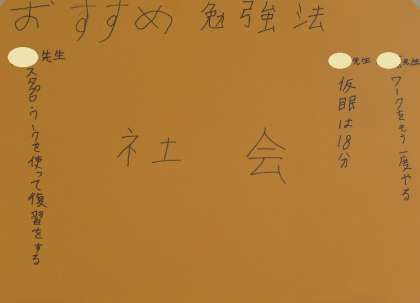 おすすめ 勉強法
先生
ワークをもう一度やる
先生
仮眠は18分
社会
先生
スタプロ・ワークを使って復習をする